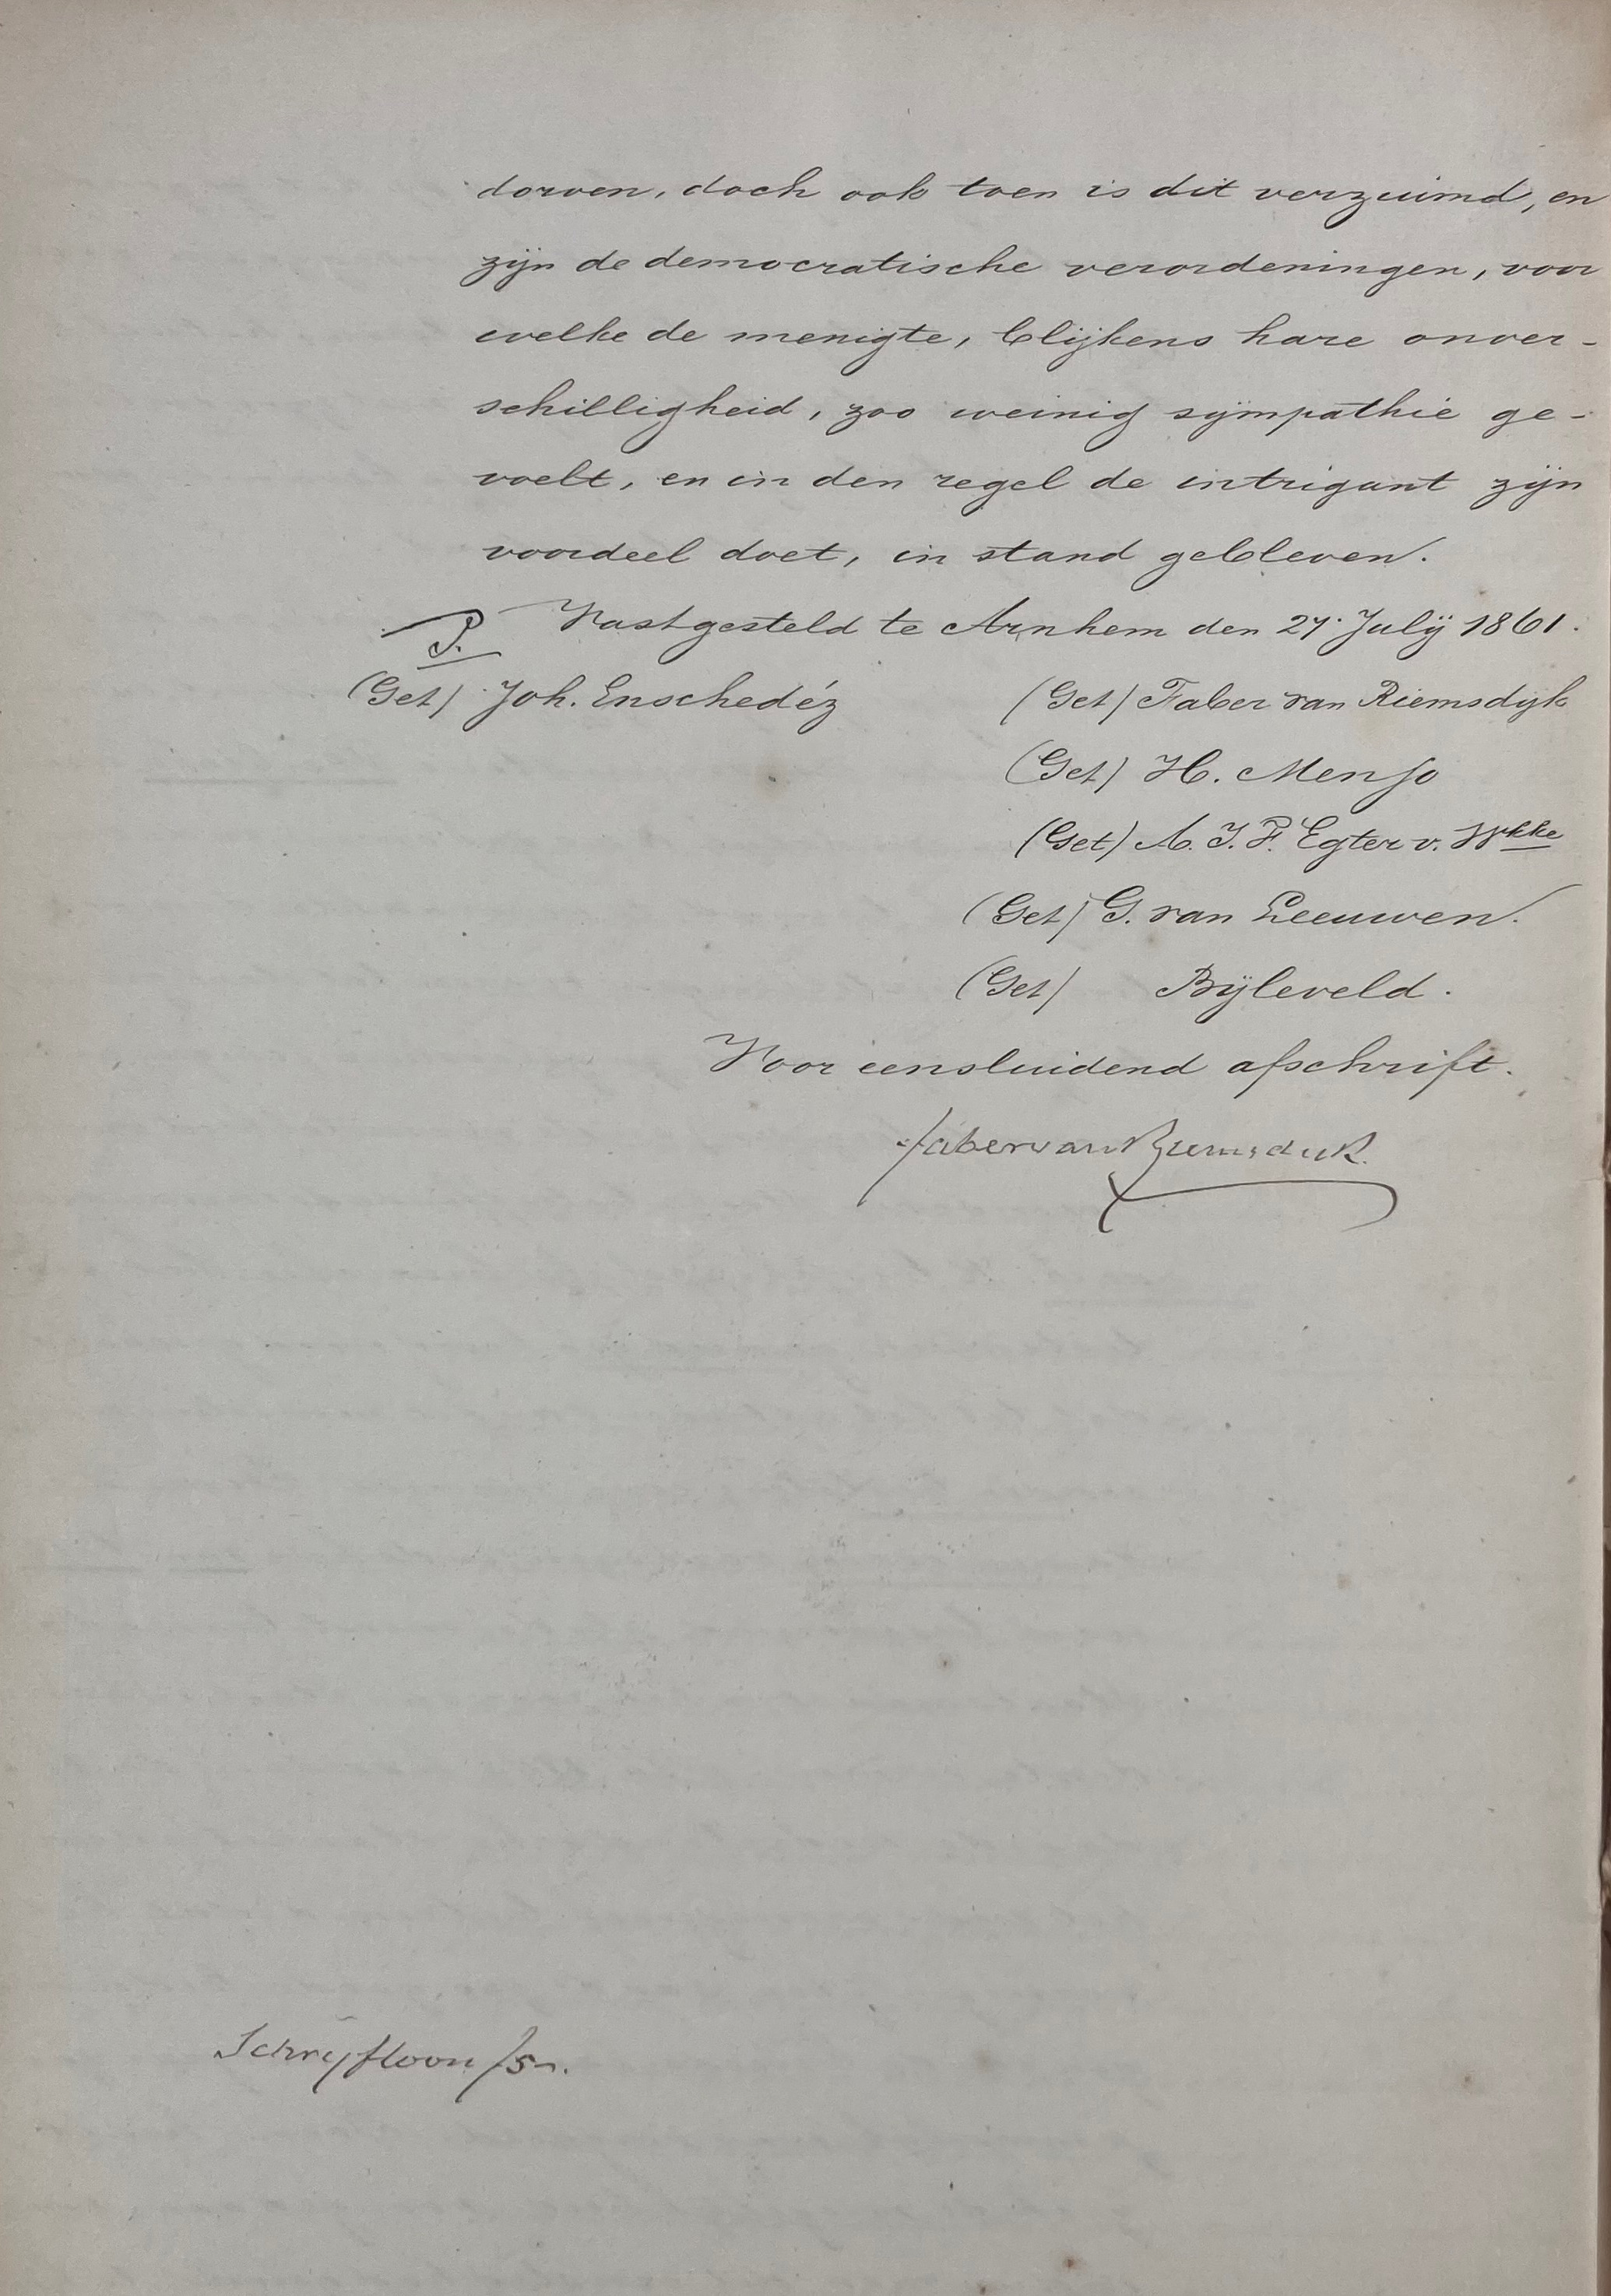 dorven, doch ook toen is dit verzuimd, en
zijn de democratische verordeningen, voor
welke de menigte, blijkens hare onver-
schilligheid, zoo weinig sÿmpathie ge-
voelt, en in den regel de intrigant zijn
voordeel doet, in stand gebleven.
Vastgesteld te Arnhem den 27. Julÿ 1861.
(Get) Joh. Enschedéz (Get) Faber van Riemsdyk
(Get) H. Menso
(Get) A. J. F. Egter v. Wkke
(Get) G. van Leeuwen.
(Get) Bÿleveld.
Voor eensluidend afschrift.
Faber van Riemsdijk.
Schryfloon